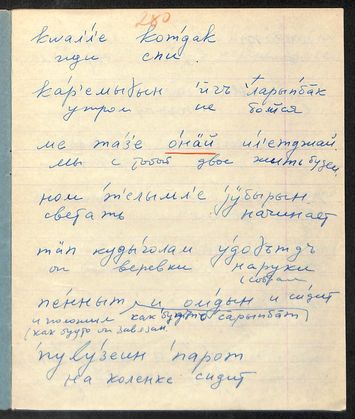 280
кwалле котдак
иди спи.
кар'емыӷын ӣгъ ларыпбӓк
утром не бойся
ме тазе онӓй илетджай.
мы с тобой двое жить будем
ном телымле ӱбырын
светать начинает
тӓп кудыголам удоӷътдъ
он веревки на руки
(собрал
пенныт и омдын и сидит
и положил как будто сарыпбат)
(как будто он завязан.
пулузеин парот
на коленке сидит